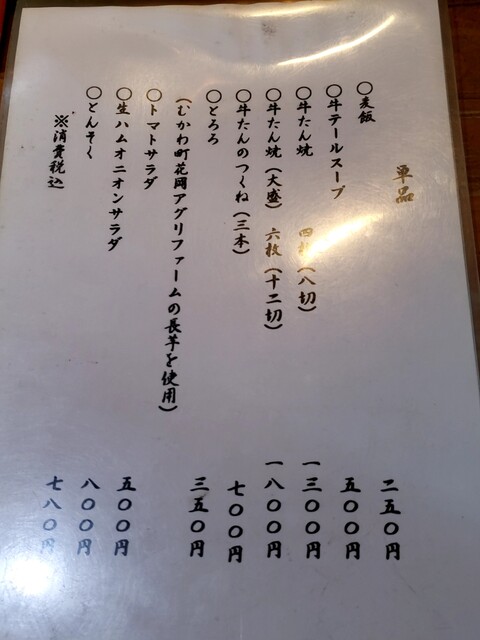 単品
○麦飯 二五〇円
○牛テールスープ 五〇〇円
○牛たん焼 四枚(八切) 一三〇〇円
○牛たん焼(大盛) 六枚(十二切) 一八〇〇円
○牛たんのつくね(三本) 七〇〇円
○とろろ 三五〇円
(むかわ町花岡アグリファームの長芋を使用)
○トマトサラダ 五〇〇円
○生ハムオニオンサラダ 八〇〇円
○とんそく 七八〇円
※消費税込